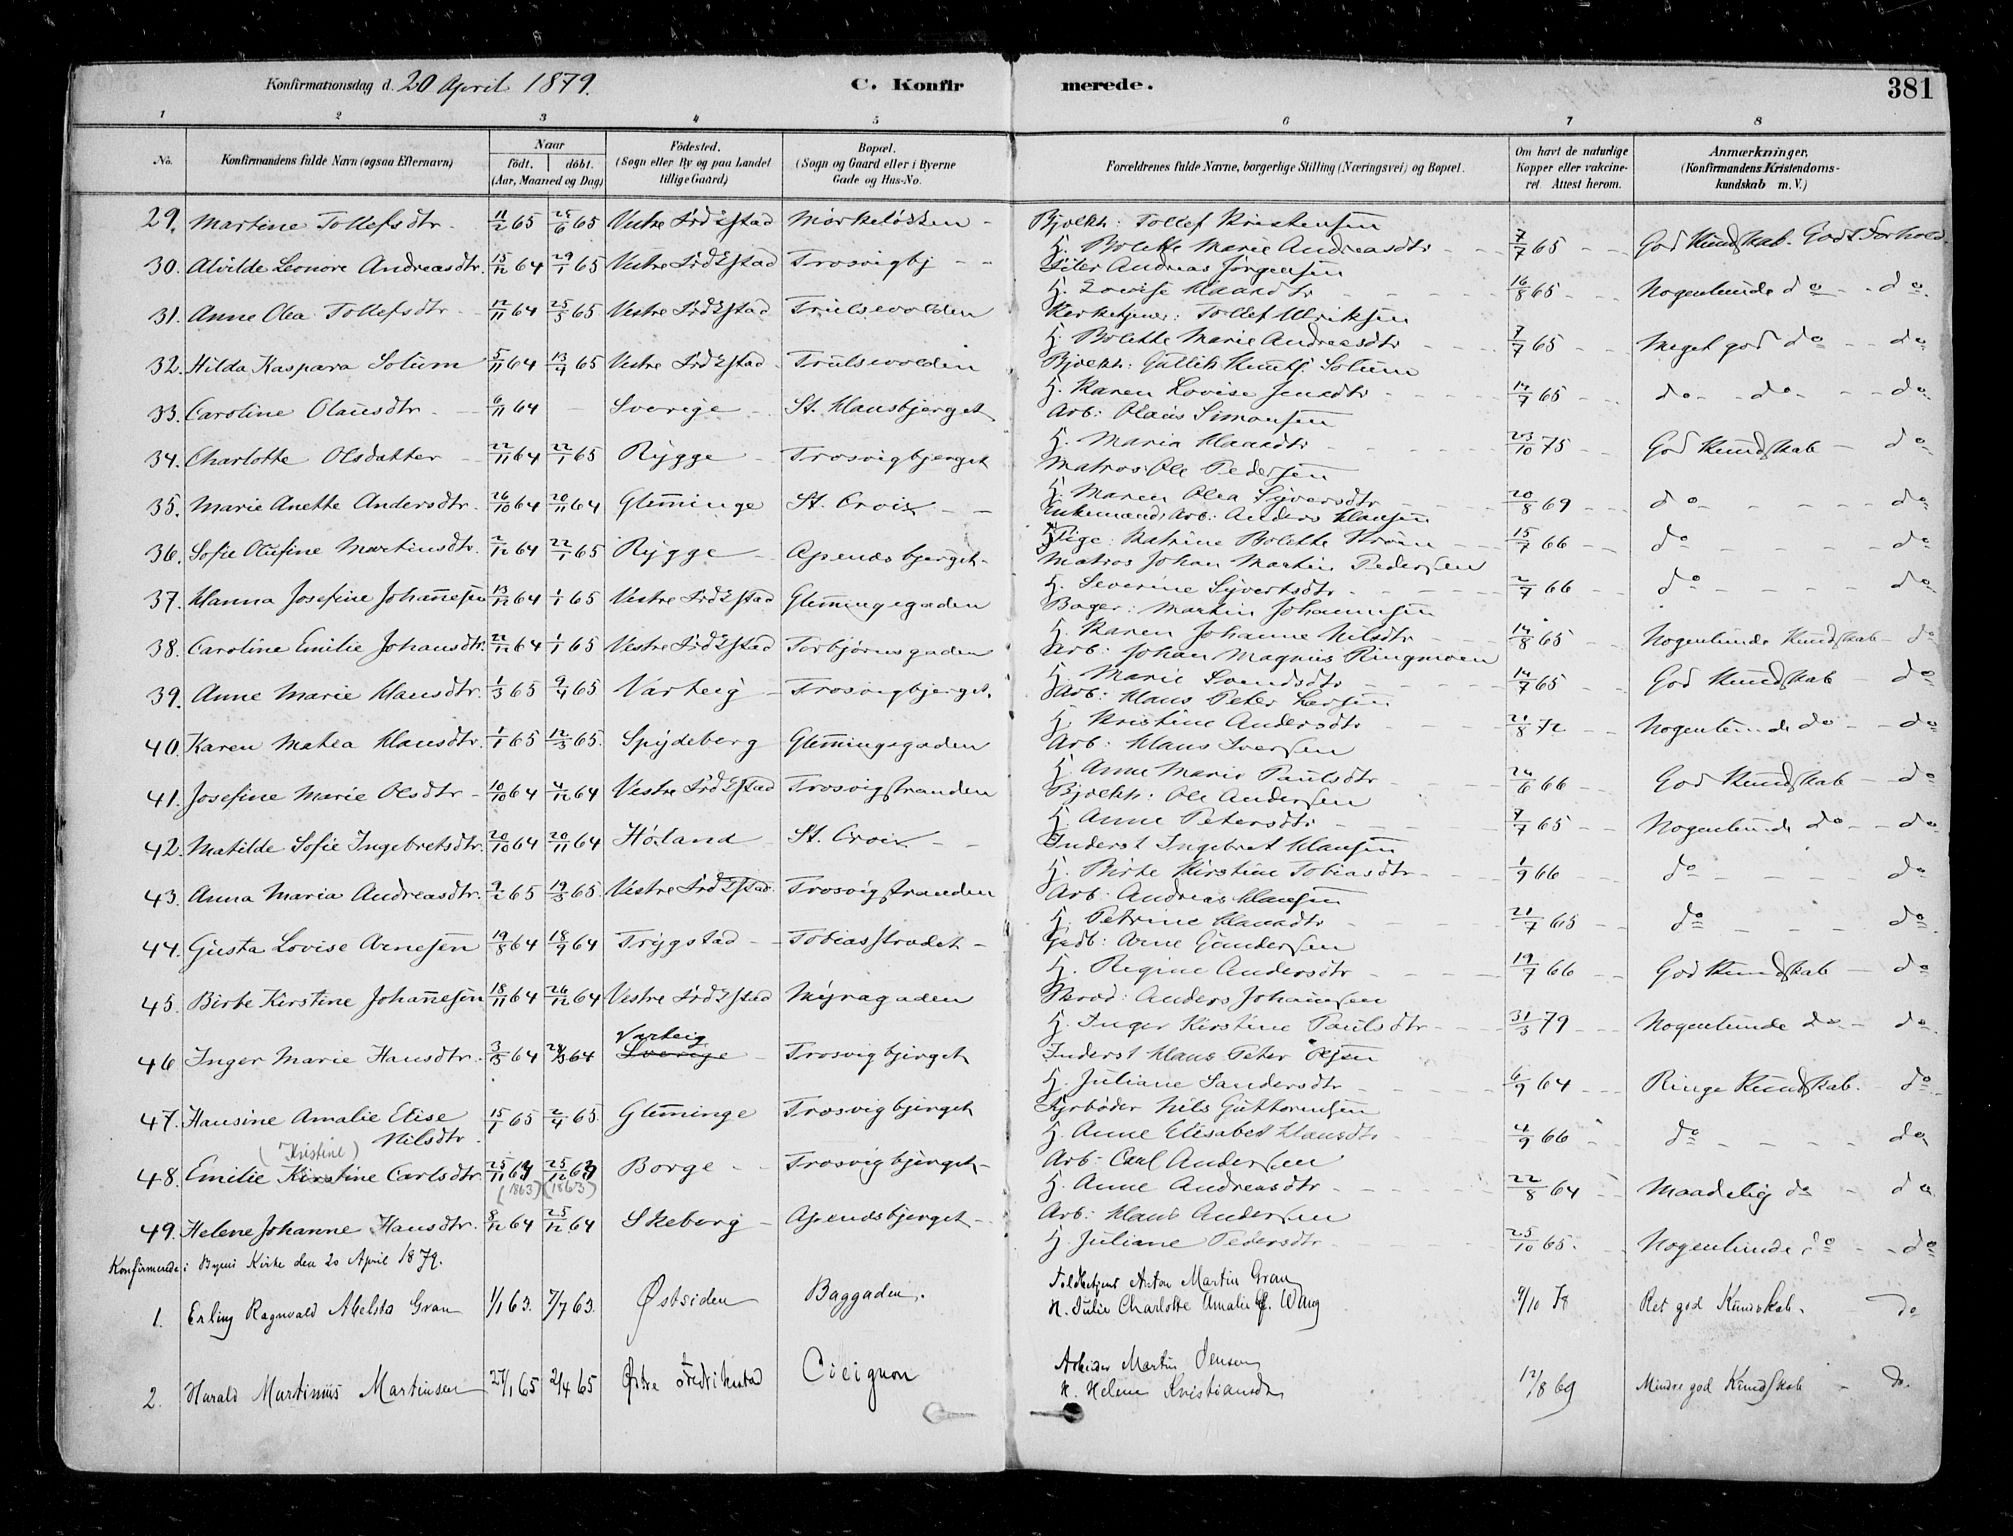 Konfirmationsdag d. 20 April 1879.
C. Konfir
merede.
381
1 2 3 4 5 6 7 8
No.
Konfirmandens fulde Navn (ogsaa Efternavn)
Naar
født. døbt.
(Aar, Maaned og Dag)
Fødested.
(Sogn eller By og paa Landet
tillige Gaard)
Bopæl.
(Sogn og Gaard eller i Byerne
Gade og Hus-No.
Forældrenes fulde Navne, borgerlige Stilling (Næringsvei) og Bopæl.
Om havt de naturlige
Kopper eller vakcine-
ret. Attest herom.
Anmærkninger,
(Konfirmandens Kristendoms-
kundskab m. V.)
29. Martine Tollefsdtr. 11/2 65 25/6 65 Vestre Frdkstad Mørkeløkken - Bjælkh: Tollef Kristensen
H. Bolette Marie Andreasdtr 7/7 65 God Kundskab. Godt Forhold.
30. Alvilde Leonore Andreasdtr. 15/12 64 29/1 65 Vestre Frdkstad Trosvigbj - - Peter Andreas Jørgensen
H. Lovise Hansdtr 16/8 65 Nogenlunde do - do.
31. Anne Olea Tollefsdtr 12/11 64 25/5 65 Vestre Frdkstad Trulsevolden Kirketjener: Tollef Ulriksen
H. Bolette Marie Andreasdtr 7/7 65 Meget god do - do
32. Hilda Kaspara Solum 5/11 64 13/4 65 Vestre Frdkstad Trulsevolden Bjælkh: Gullik Knuts. Solum
H. Karen Lovise Jensdtr 14/7 65 do - do - do
33. Caroline Olausdtr. 6/11 64 - Sverige St. Hansbjerget Arb: Olaus Simonsen
H. Maria Hansdtr 23/10 75 God Kundskab - do
34. Charlotte Olsdatter 22/11 64 22/1 65 Rygge Trosvigbjerget Matros Ole Pedersen
H. Maren Olea Syversdtr 20/8 69 do - do
35. Marie Anette Andersdtr. 26/10 64 20/11 64 Glemminge St. Croix - - Enkemand, Arb: Anders Hansen
Pige: Katrine Bolette Strøm 15/7 66 do - do
36. Sofie Olufine Martinsdtr. 2/12 64 22/1 65 Rygge Apenæsbjerget - Matros Johan Martin Pedersen
H. Severine Syvertsdtr 2/7 66 do - do
37. Hanna Josefine Johannesen 13/12 64 1/1 65 Vestre Frdkstad Glemmingegaden Bager: Martin Johannesen
H. Karen Johanne Nilsdtr 14/8 65 Nogenlunde Kundskab - do
38. Caroline Emilie Johansdtr. 22/12 64 1/1 65 Vestre Frdkstad Torbjørnsgaden Arb: Johan Magnus Ringmoen
H. Marie Svendsdtr 14/7 65 God Kundskab - do
39. Anne Marie Hansdtr. 1/3 65 9/4 65 Varteig Trosvigbjerget. Arb: Hans Peter Larsen
H. Kristine Andersdtr 21/8 72 Nogenlunde do - do
40. Karen Matea Hansdtr. 1/1 65 12/3 65. Spydeberg Glemmingegaden Arb: Hans Iversen
H. Anne Marie Paulsdtr 24/6 66 God Kundskab - do
41. Josefine Marie Olsdtr - 10/10 64 4/12 64 Vestre Frdkstad Trosvigstranden Bjælkh: Ole Andersen
H. Anne Petersdtr 7/7 65 Nogenlunde do - do
42. Matilde Sofie Ingebretsdtr. 20/10 64 20/11 64 Høland St. Croix - - Inderst Ingebret Hansen
H. Birte Kirstine Tobiasdtr 1/9 66 do - do
43. Anna Maria Andreasdtr. 9/2 65 19/3 65. Vestre Frdkstad. Trosvigstranden Arb: Andreas Hansen
H. Petrine Hansdtr 21/7 65 do - do
44. Gusta Lovise Arnesen 19/8 64 18/9 64 Trygstad - Tobiasstrædet - Gedb: Arne Gundersen
H. Regine Andersdtr 19/7 66 God Kundskab - do
45. Birte Kirstine Johannesen 18/11 64 26/12 64 Vestre Frdkstad Myragaden Skræd: Anders Johannsen
H. Inger Kirstine Paulsdtr 31/3 79 Nogenlunde do - do
46 Inger Marie Hansdtr. 3/3 64 28/3 64 Varteig Sverige Trosvigbjerget Inderst Hans Peter Olsen
H. Juliane Sandersdtr 6/9 64 Ringe Kundskab. do
47. Hansine Amalie Elise
Nilsdtr. 15/1 65 2/4 65. Glemminge Trosvigbjerget Fyrbøder Nils Guttormsen
H. Anne Elisabet Hansdtr 4/9 66 do - do
48. Emilie Kirstine (Kristine) Carlsdtr. 25/11 63 25/12 63 (1863) (1863) Borge - Trosvigbjerget - Arb: Carl Andersen
H. Anne Andreasdtr 22/8 64 Maadelig do - do
49. Helene Johanne Hansdtr. 8/12 64 25/12 64 Skeberg - Apenæsbjerget - Arb: Hans Andersen
H. Juliane Pedersdtr 25/10 65. Nogenlunde do - do
Konfirmerede i Byens Kirke den 20 April 1879.
1. Erling Ragnvald Abelsto Gran 1/1 63. 7/7 63. Østsiden Baggaden. Toldbetjent Anton Martin Gran
H. Julie Charlotte Amalie f. Wang 9/10 78 Ret god Kundskab. do
2. Harald Martinius Martinsen 27/1 65 2/4 65 Østre Fredrikstad Cicignon Arbeider Martin Jensen
H. Helene Kristiansdtr 12/8 69 Mindre god Kundskab - do.